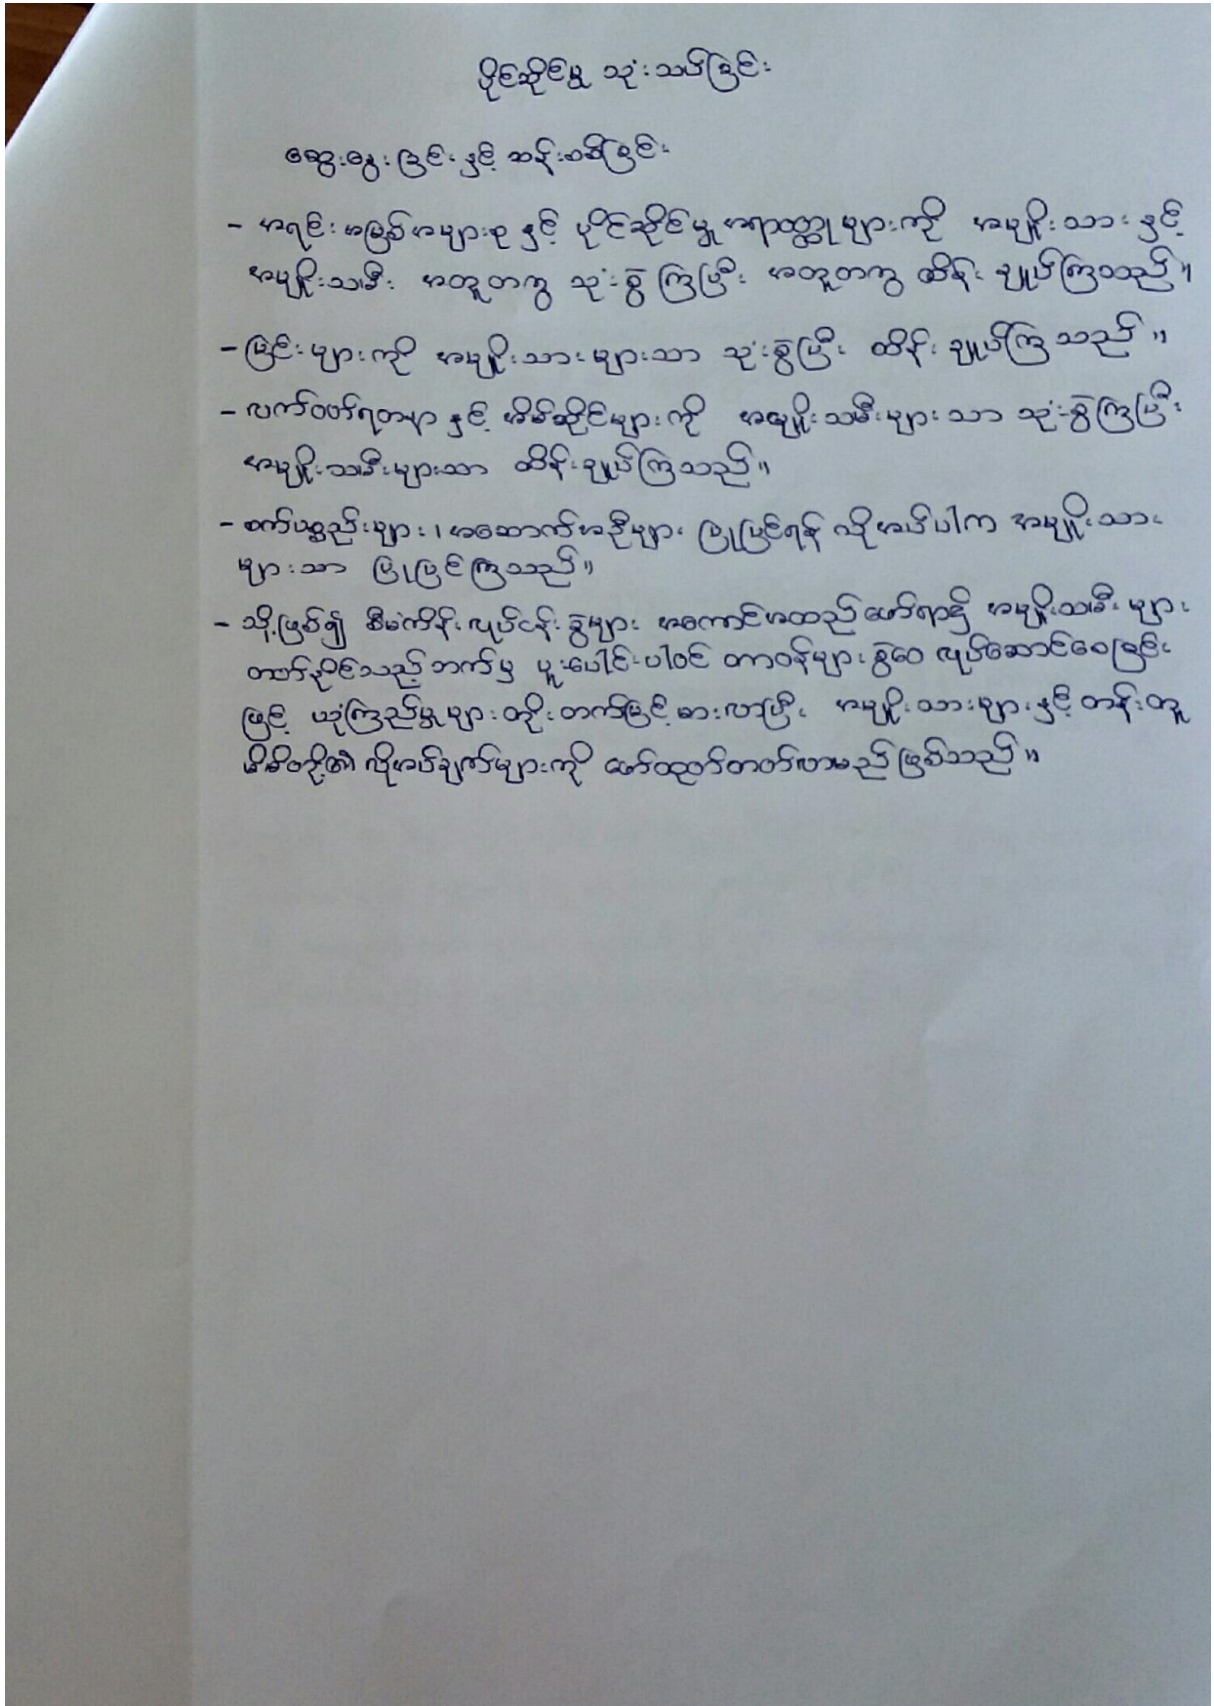 ပိုင်ဆိုင်မှု သုံးသပ်ခြင်း
ဆွေးနွေးခြင်းနှင့် ဆန်းစစ်ခြင်း
- အရင်းအမြစ်အများစု နှင့် ပိုင်ဆိုင်မှု အရာဝတ္ထုများကို အမျိုးသားနှင့်
အမျိုးသမီး အတူတကွ သုံးစွဲကြပြီး အတူတကွ ထိန်းချုပ်ကြသည်။
- မြင်းများကို အမျိုးသားများသာ သုံးစွဲပြီး ထိန်းချုပ်ကြသည်။
- လက်ဝတ်ရတနာ နှင့် အိမ်ဆိုင်များကို အမျိုးသမီးများသာ သုံးစွဲကြပြီး
အမျိုးသမီးများသာ ထိန်းချုပ်ကြသည်။
- စက်ပစ္စည်းများ ၊ အဆောက်အဦများ ပြုပြင်ရန် လိုအပ်ပါက အမျိုးသား
များသာ ပြုပြင်ကြသည်။
- သို့ဖြစ်၍ စီမံကိန်းလုပ်ငန်းခွဲများ အကောင်အထည်ဖော်ရာ၌ အမျိုးသမီးများ
တတ်နိုင်သည့်ဘက်မှ ပူးပေါင်းပါဝင် တာဝန်များခွဲဝေ လုပ်ဆောင်စေခြင်း
ဖြင့် ယုံကြည်မှုများတိုးတက်မြင့်မားလာပြီး အမျိုးသားများနှင့် တန်းတူ
မိမိတို့၏ လိုအပ်ချက်များကို ဖော်ထုတ်တတ်လာမည်ဖြစ်သည်။